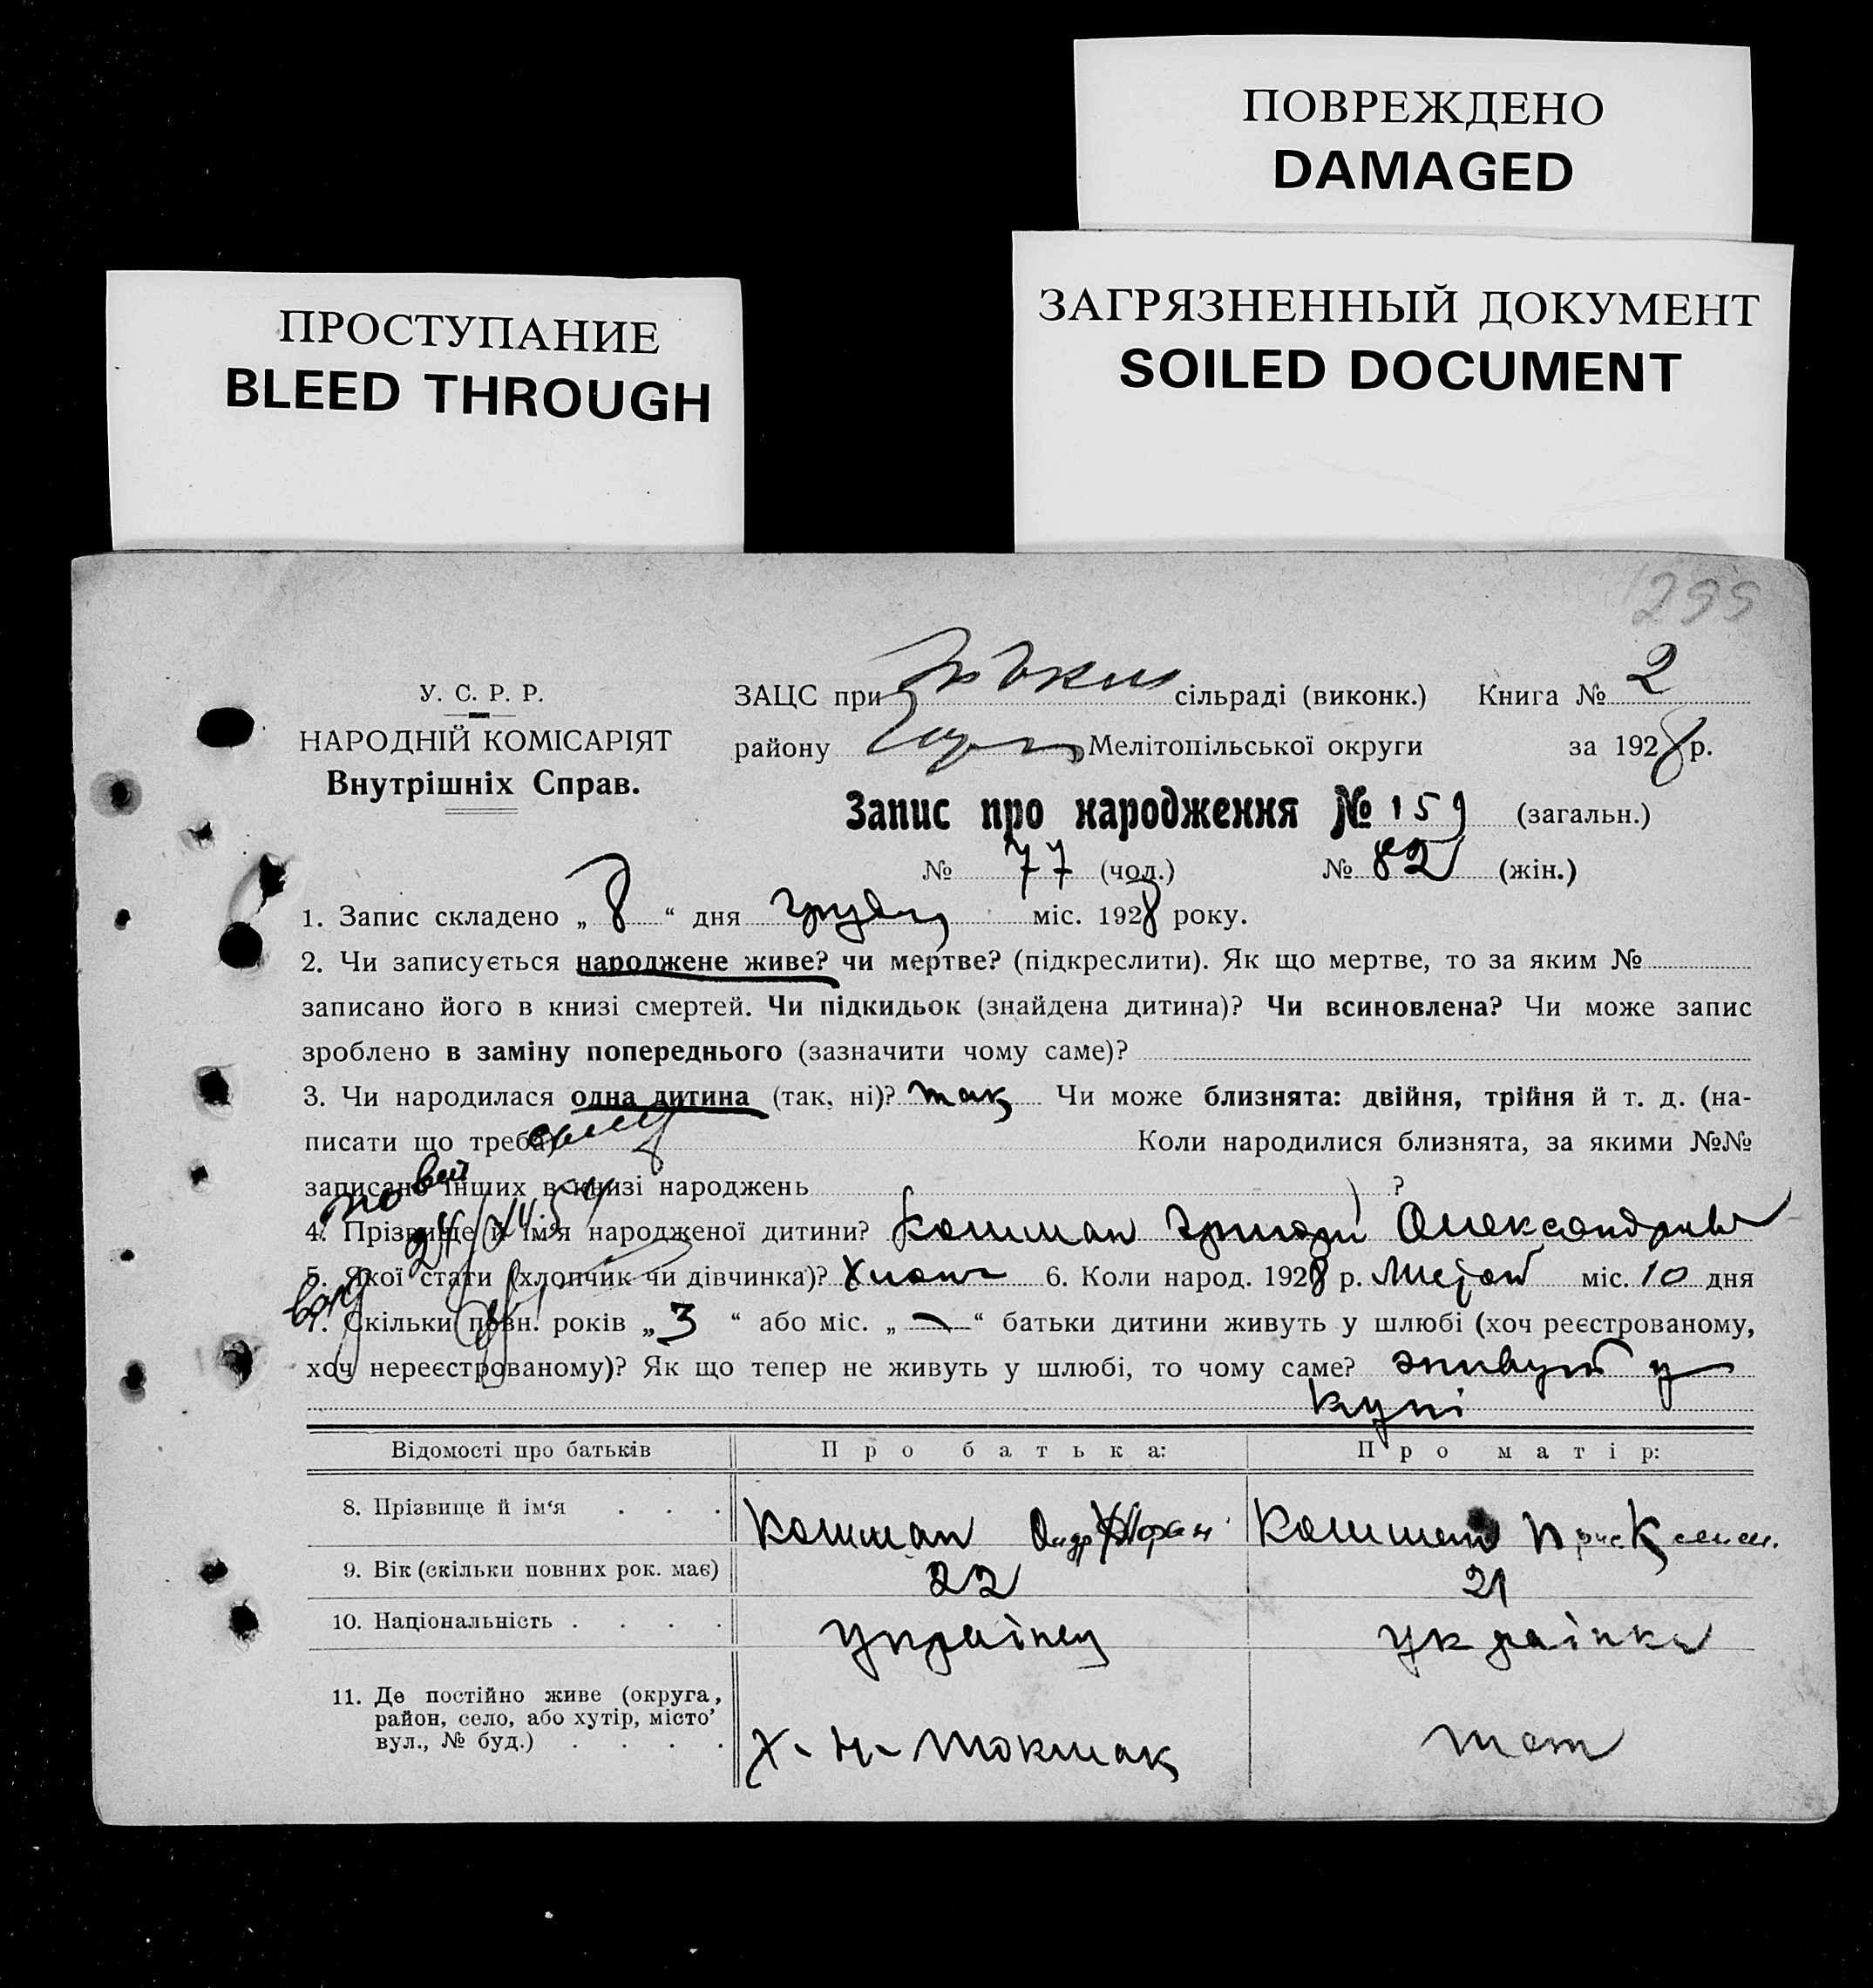 ПОВРЕЖДЕНО
DAMAGED
ПРОСТУПАНИЕ
BLEED THROUGH
ЗАГРЯЗНЕННЫЙ ДОКУМЕНТ
SOILED DOCUMENT
299
У. С. Р. Р.
НАРОДНІЙ КОМІСАРІЯТ
Внутрішніх Справ.
ЗАЦС при сільраді (виконк.) Книга № 2
району Мелітопільської округи за 1928 р.
Запис про народження № 159 (загальн.)
№ 77 (чол.) № 82 (жін.)
1. Запис складено „ 8 “ дня грудня міс. 1928 року.
2. Чи записується народжене живе? чи мертве? (підкреслити). Як що мертве, то за яким №
записано його в книзі смертей. Чи підкидьок (знайдена дитина)? Чи всиновлена? Чи може запис
зроблено в заміну попереднього (зазначити чому саме)?
3. Чи народилася одна дитина (так, ні)? так Чи може близнята: двійня, трійня й т. д. (на-
писати що треба) Коли народилися близнята, за якими №№
записано інших в книзі народжень ?
4. Прізвище й ім'я народженої дитини? Кошман Григорій Олександров
5. Якої стати (хлопчик чи дівчинка)? Хлопч 6. Коли народ. 1928 р. Листоп міс. 10 дня
7. Скільки повн. років „ 3 “ або міс. „ — “ батьки дитини живуть у шлюбі (хоч реєстрованому,
хоч нереєстрованому)? Як що тепер не живуть у шлюбі, то чому саме? живуть у
купі
Відомості про батьків Про батька: Про матір:
8. Прізвище й ім'я . . . Кошман Кошман
9. Вік (скільки повних рок. має) 22 21
10. Національність . . . . українец українка
11. Де постійно живе (округа,
район, село, або хутір, місто
вул., № буд.) . . . . Х-Н-Токмак там